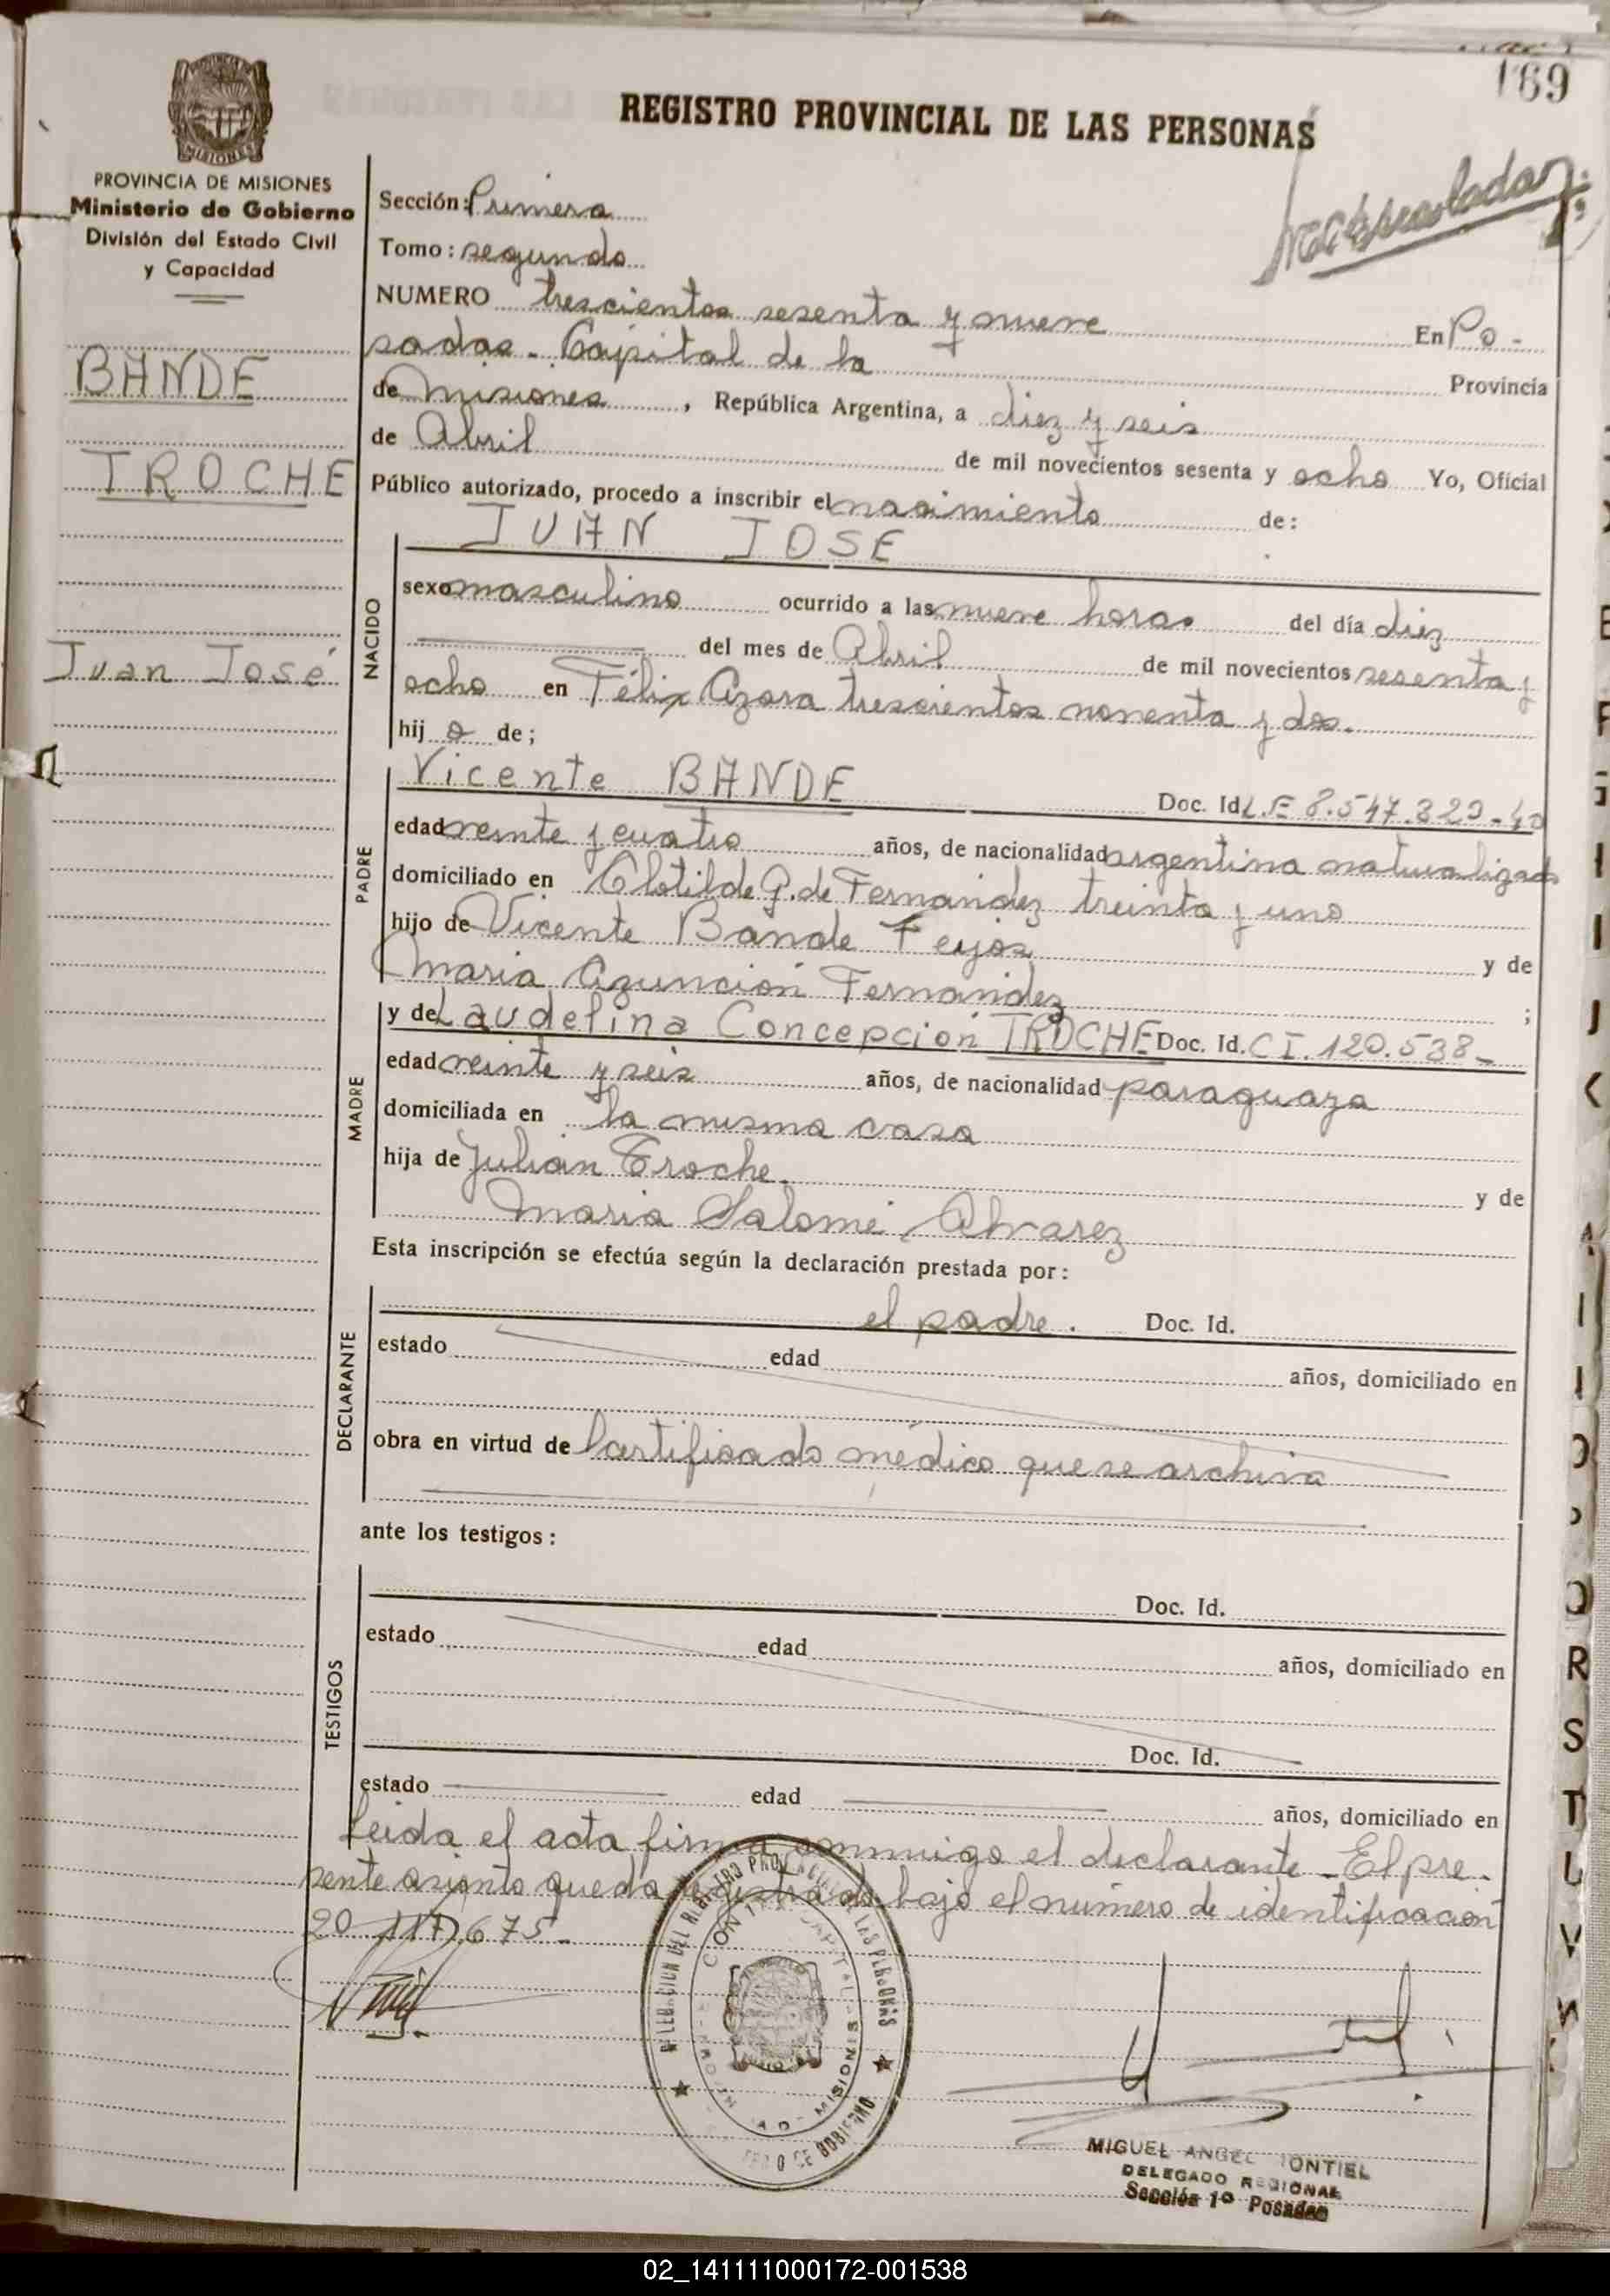 169
REGISTRO PROVINCIAL DE LAS PERSONAS
PROVINCIA DE MISIONES
Ministerio de Gobierno
División del Estado Civil
y Capacidad
BANDE
TROCHE
Juan José
Sección: Primera
Tomo: segundo
NUMERO trescientos sesenta y nueve En Po-
sadas - Capital de la Provincia
de Misiones, República Argentina, a diez y seis
de Abril de mil novecientos sesenta y ocho Yo, Oficial
Público autorizado, procedo a inscribir el nacimiento de:
JUAN JOSE
NACIDO
sexo masculino ocurrido a las nueve horas del día diez
del mes de Abril de mil novecientos sesenta y
ocho en Félix Azara trescientos noventa y dos.
hijo de;
PADRE
Vicente BANDE Doc. Id. L.E 8.547.320-40
edad veinte y cuatro años, de nacionalidad argentina naturalizado
domiciliado en Clotilde G. de Fernandez treinta y uno
hijo de Vicente Bande Feijoo y de
Maria Asunción Fernández ;
MADRE
y de Laudelina Concepción TROCHE Doc. Id. C I. 120.538-
edad veinte y seis años, de nacionalidad paraguaya
domiciliada en la misma casa
hija de Julián Troche y de
Maria Salomé Alvarez
Esta inscripción se efectúa según la declaración prestada por:
DECLARANTE
el padre. Doc. Id.
estado edad años, domiciliado en
obra en virtud de Certificado médico que se archiva
ante los testigos:
TESTIGOS
Doc. Id.
estado edad años, domiciliado en
Doc. Id.
estado edad años, domiciliado en
Leida el acta firma conmigo el declarante - El pre-
sente asiento queda registrado bajo el número de identificación
20.117.675.-
DEL REGISTRO PROVINCIAL DE LAS PERSONAS
CAPITAL MISIONES
DE GOBIERNO
MIGUEL ANGEL MONTIEL
DELEGADO REGIONAL
Sección 1º Posadas
R
S
T
U
V
02_141111000172-001538